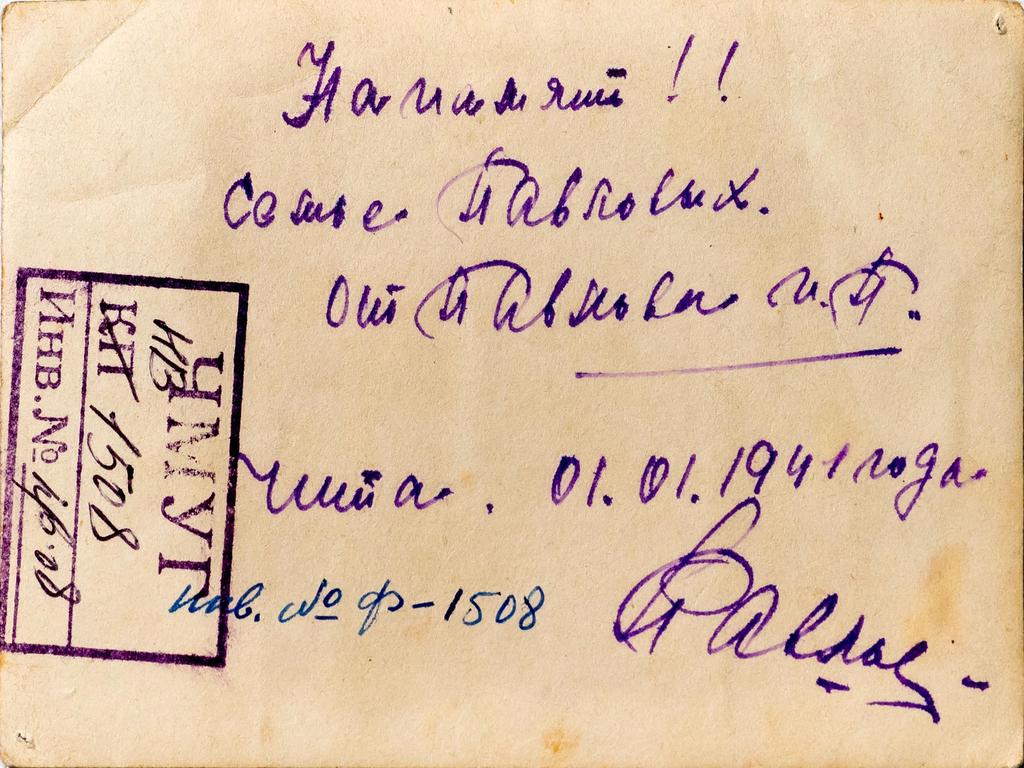 На память!!
Семье Павловых.
от Павлова И.П.
Чита. 01.01.1941 года
Павлов
инв. № ф-1508
ЧМУТ
НВ
КП 1508
Инв. №